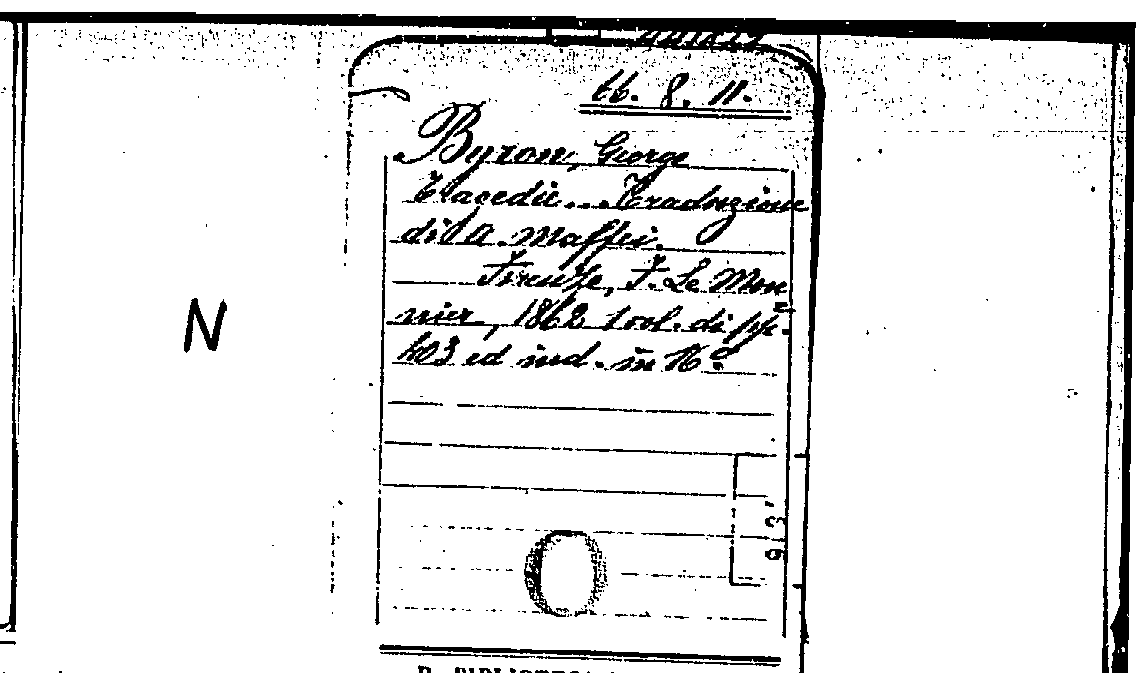 66. 8. 11.
Byron, George
Tragedie... Traduzione
di A. Maffei.
Firenze, F. Le Mon
nier, 1862 1 vol. di pp.
403 ed ind. in 16º
N
913